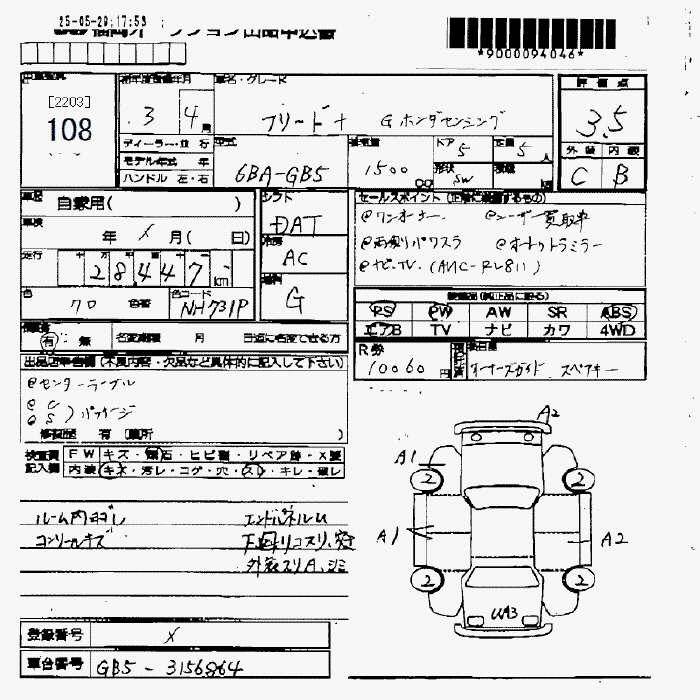 25-05-29;17:53
*9000094046*
[2203]
108
初年度登録年月
車名・グレード
評価点
3 4月
フリード+ Gホンダセンシング
3.5
ディーラー・並行
型式
排気量
ドア
定員
モデル年式 年
6BA-GB5
1500 CC
5
5人
ハンドル 左・右
形状 SW
積載
外装 内装
C B
車歴 自家用( )
シフト
DAT
セールスポイント(正常に装備するもの)
@ワンオーナー @ユーザー買取車
車検 年 X 月( 日)
冷房
AC
@両側パワスラ @オートリトラミラー
走行
28447 km
@ナビ・TV.(AMC-RL811)
燃料
G
色 クロ 色替
色コード NH731P
装備品(純正品に限る)
PS PW AW SR ABS
エアB TV ナビ カワ 4WD
有・無
名変期限 月 日迄に名変できる方
R券
10060円
オーナーズガイド スペアキー
出品店申告欄(不具内容・欠品など具体的に記入して下さい)
@センターテーブル
@C
@S )パッケージ
修復歴 有(箇所 )
検査員 FW キズ・飛石・ヒビ割・リペア跡・X要
記入欄 内装 キズ・汚レ・コゲ・穴・スレ・キレ・破レ
ルーム内ヨゴレ エンドパネルU
コンソールキズ 下回リコスリ、
外装スリA、シミ
A2
A1
2
2
A1
A2
2
2
UA3
登録番号 X
車台番号 GB5-3156864